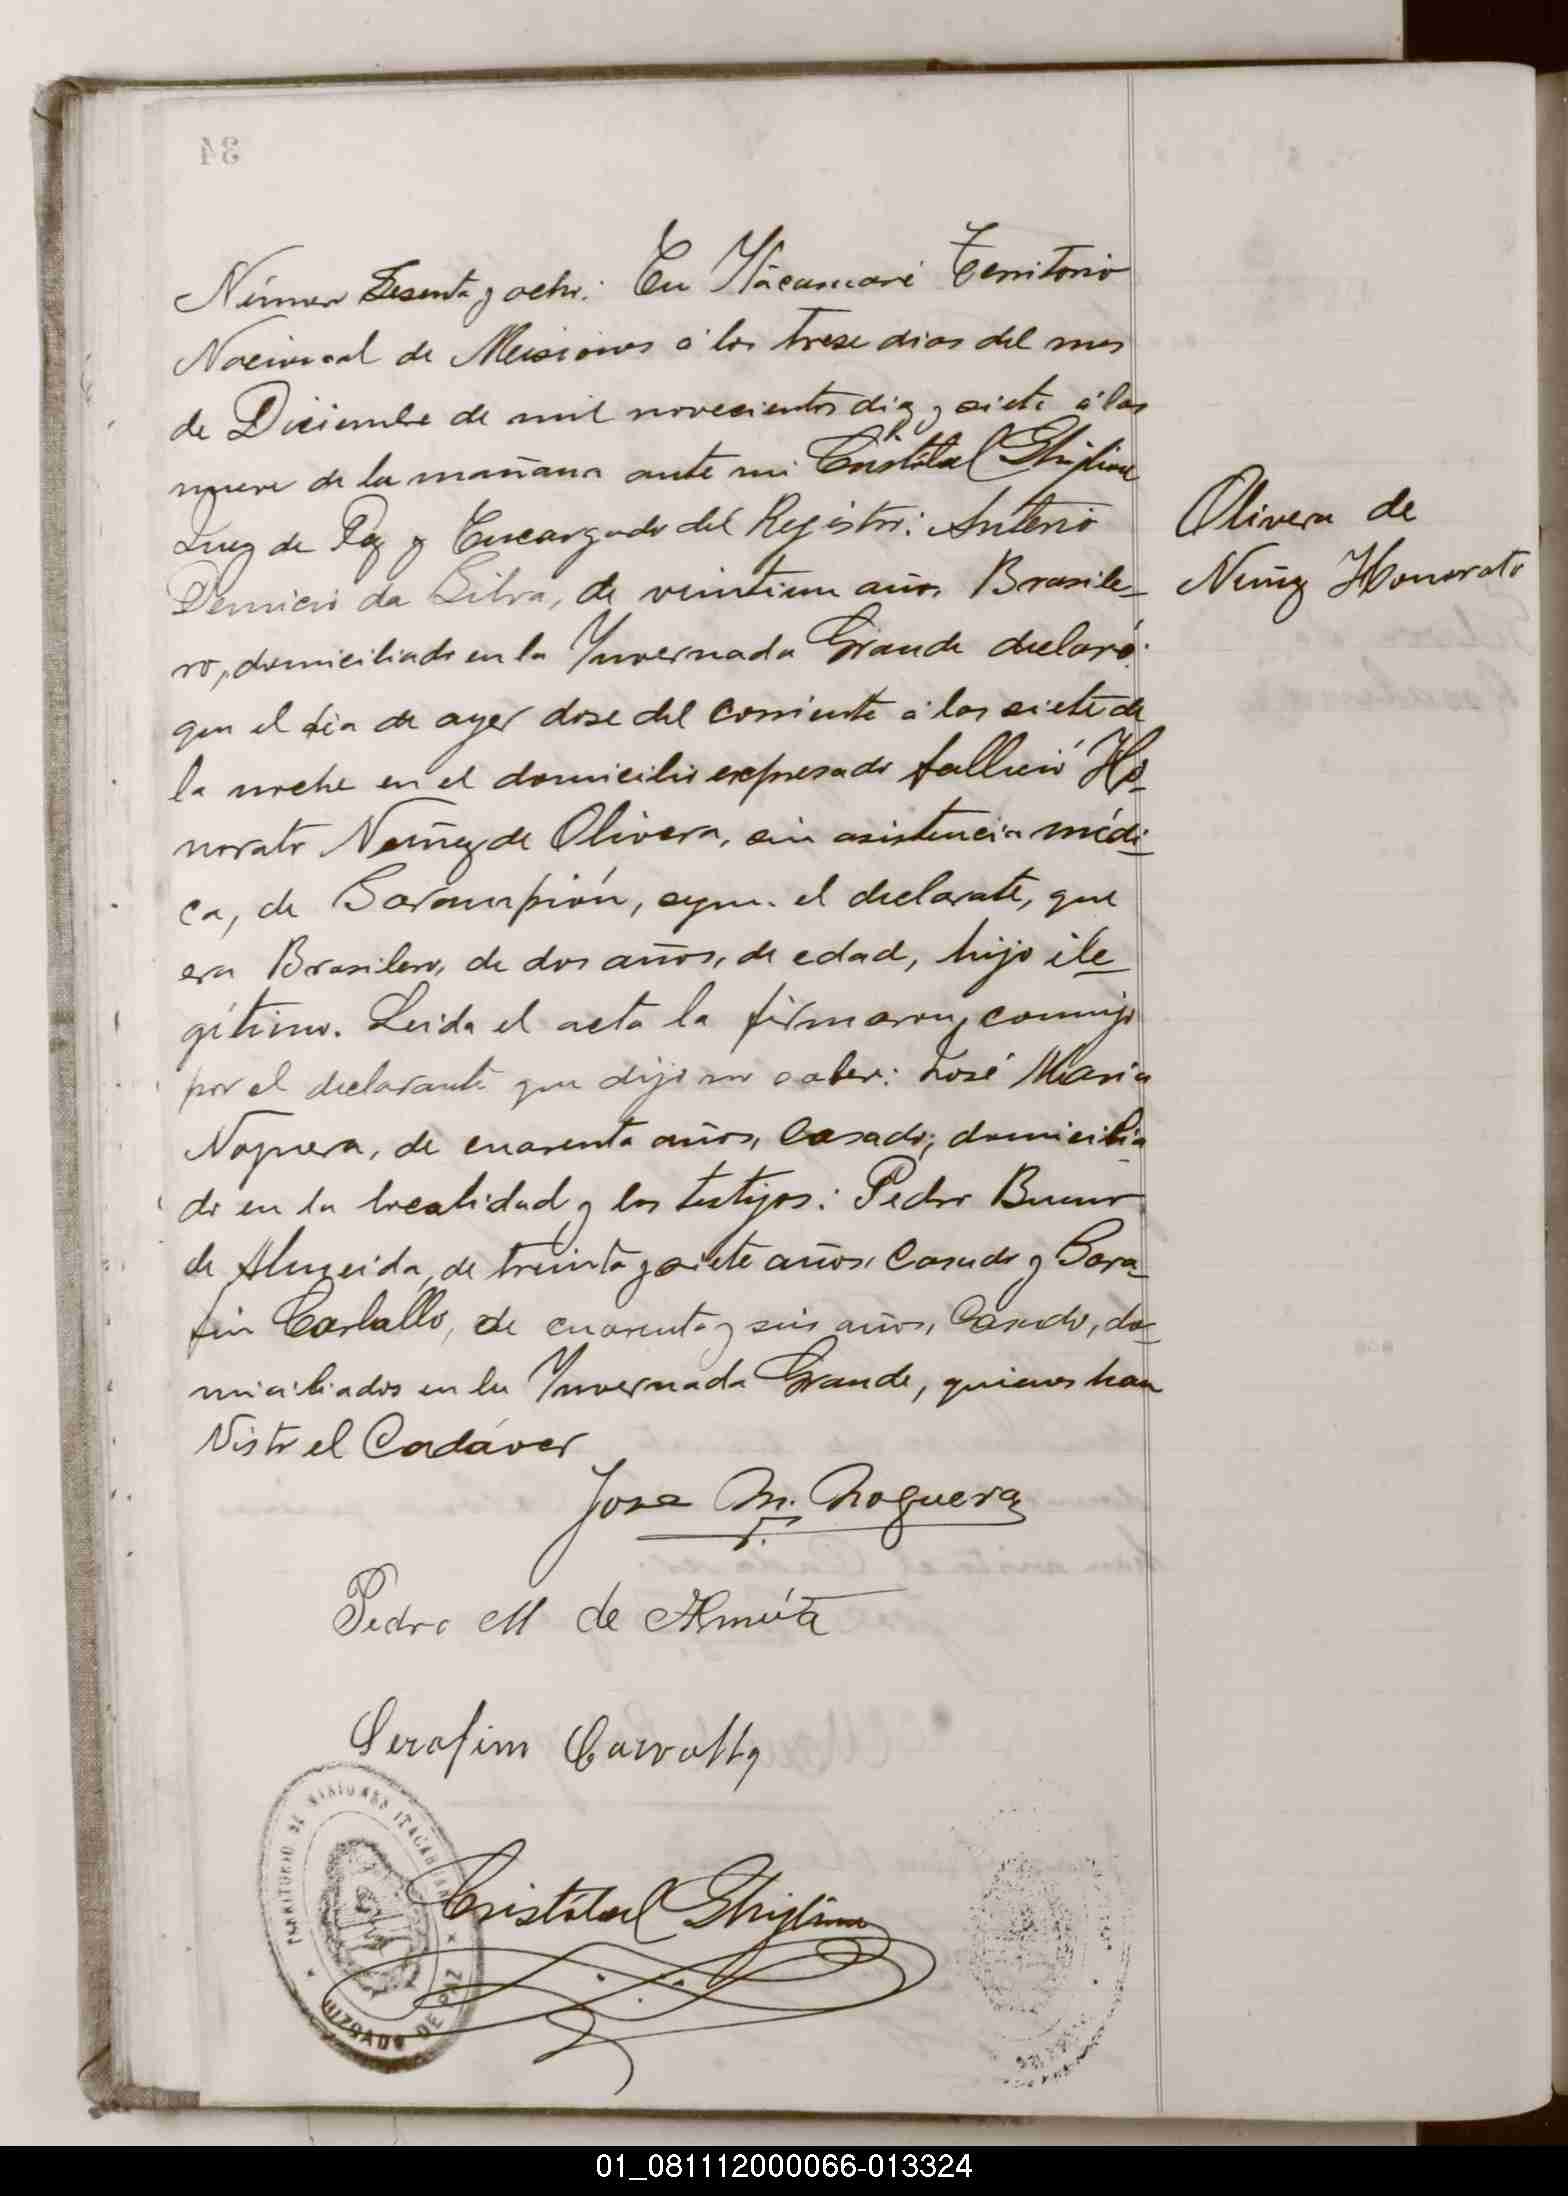 Número Sesenta y ocho: En Itacaruaré Territorio
Nacional de Misiones á los trese dias del mes
de Diciembre de mil novecientos diez y siete á las
nueve de la mañana ante mi Cristóbal Ghiglione
Juez de Paz y Encargado del Registro: Antonio
da Silva, de veintiun años, Brasile-
ro, domiciliado en la Invernada Grande declaró:
que el dia de ayer dose del corriente á las siete de
la noche en el domicilio expresado falleció Ho-
norato Nuñez de Olivera, sin asistencia médi-
ca, de Sarampión, segun el declarante, que
era Brasilero, de dos años, de edad, hijo ile-
gítimo. Leida el acta la firmaron, conmigo
por el declarante que dijo no saber: José Maria
Noguera, de cuarenta años, Casado, domicilia
do en la localidad y los testigos: Pedro Bueno
de Almeida, de treinta y siete años, Casado y Sara-
fin Carballo, de cuarenta y seis años, Casado, do-
miciliados en la Invernada Grande, quienes han
Visto el Cadáver
Olivera de
Nuñez Honorato
Jose M. Noguera
Pedro M de
Serafim Carvallo
Cristóbal Ghiglione
TERRITORIO DE MISIONES ITACARUARE
JUZGADO DE PAZ
01_081112000066-013324